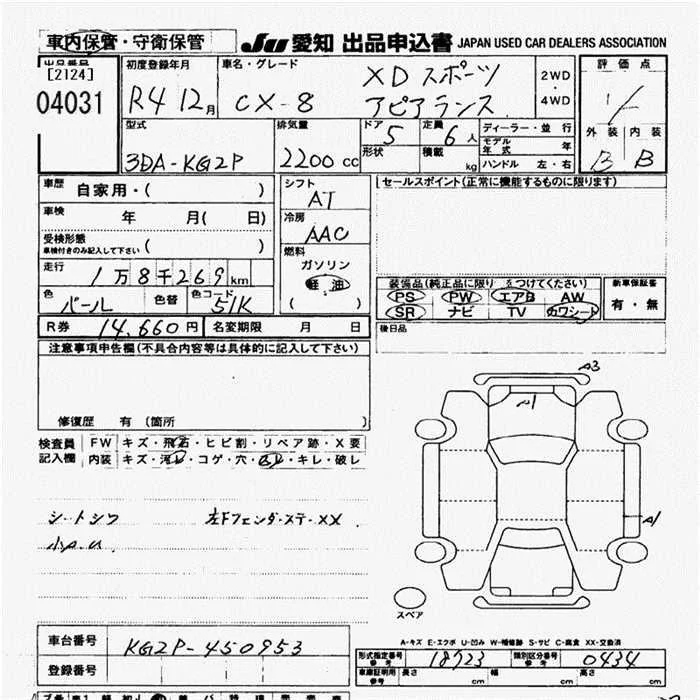 車内保管・守衛保管
JU 愛知 出品申込書 JAPAN USED CAR DEALERS ASSOCIATION
出品番号 [2124] 04031
初度登録年月 R4 12月
車名・グレード CX-8 XD スポーツ アピアランス
2WD・4WD
評価点
外装 B 内装 B
型式 3DA-KG2P
排気量 2200 cc
ドア 5 形状
定員 6 人 積載 kg
ディーラー・並行
モデル年式 年
ハンドル 左・右
車歴 自家用・( )
車検 年 月( 日)
受検形態 車検付きのみ記入して下さい ( )
走行 1万8千269 km
色 パール 色替 色コード 51K
シフト AT
冷房 AAC
燃料 ガソリン 軽油 ( )
セールスポイント(正常に機能するものに限ります)
装備品(純正品に限り をつけてください)
PS PW エアB AW
SR ナビ TV カワシート
新車保証書 有・無
後日品
R券 14,660円 名変期限 月 日
注意事項申告欄(不具合内容等は具体的に記入して下さい)
修復歴 有 (箇所 )
検査員記入欄
FW キズ・飛石・ヒビ割・リペア跡・X要
内装 キズ・汚レ・コゲ・穴・スレ・キレ・破レ
シートシワ 左Fフェンダーステー XX
小A.U
A3
A1
A1
スペア
A-キズ E-エクボ U-凹み W-補修跡 S-サビ C-腐食 XX-交換済
車台番号 KG2P-450953
登録番号
形式指定番号 参考 18723
類別区分番号 参考 0434
車庫証明用 参考 長さ cm 幅 cm 高さ cm